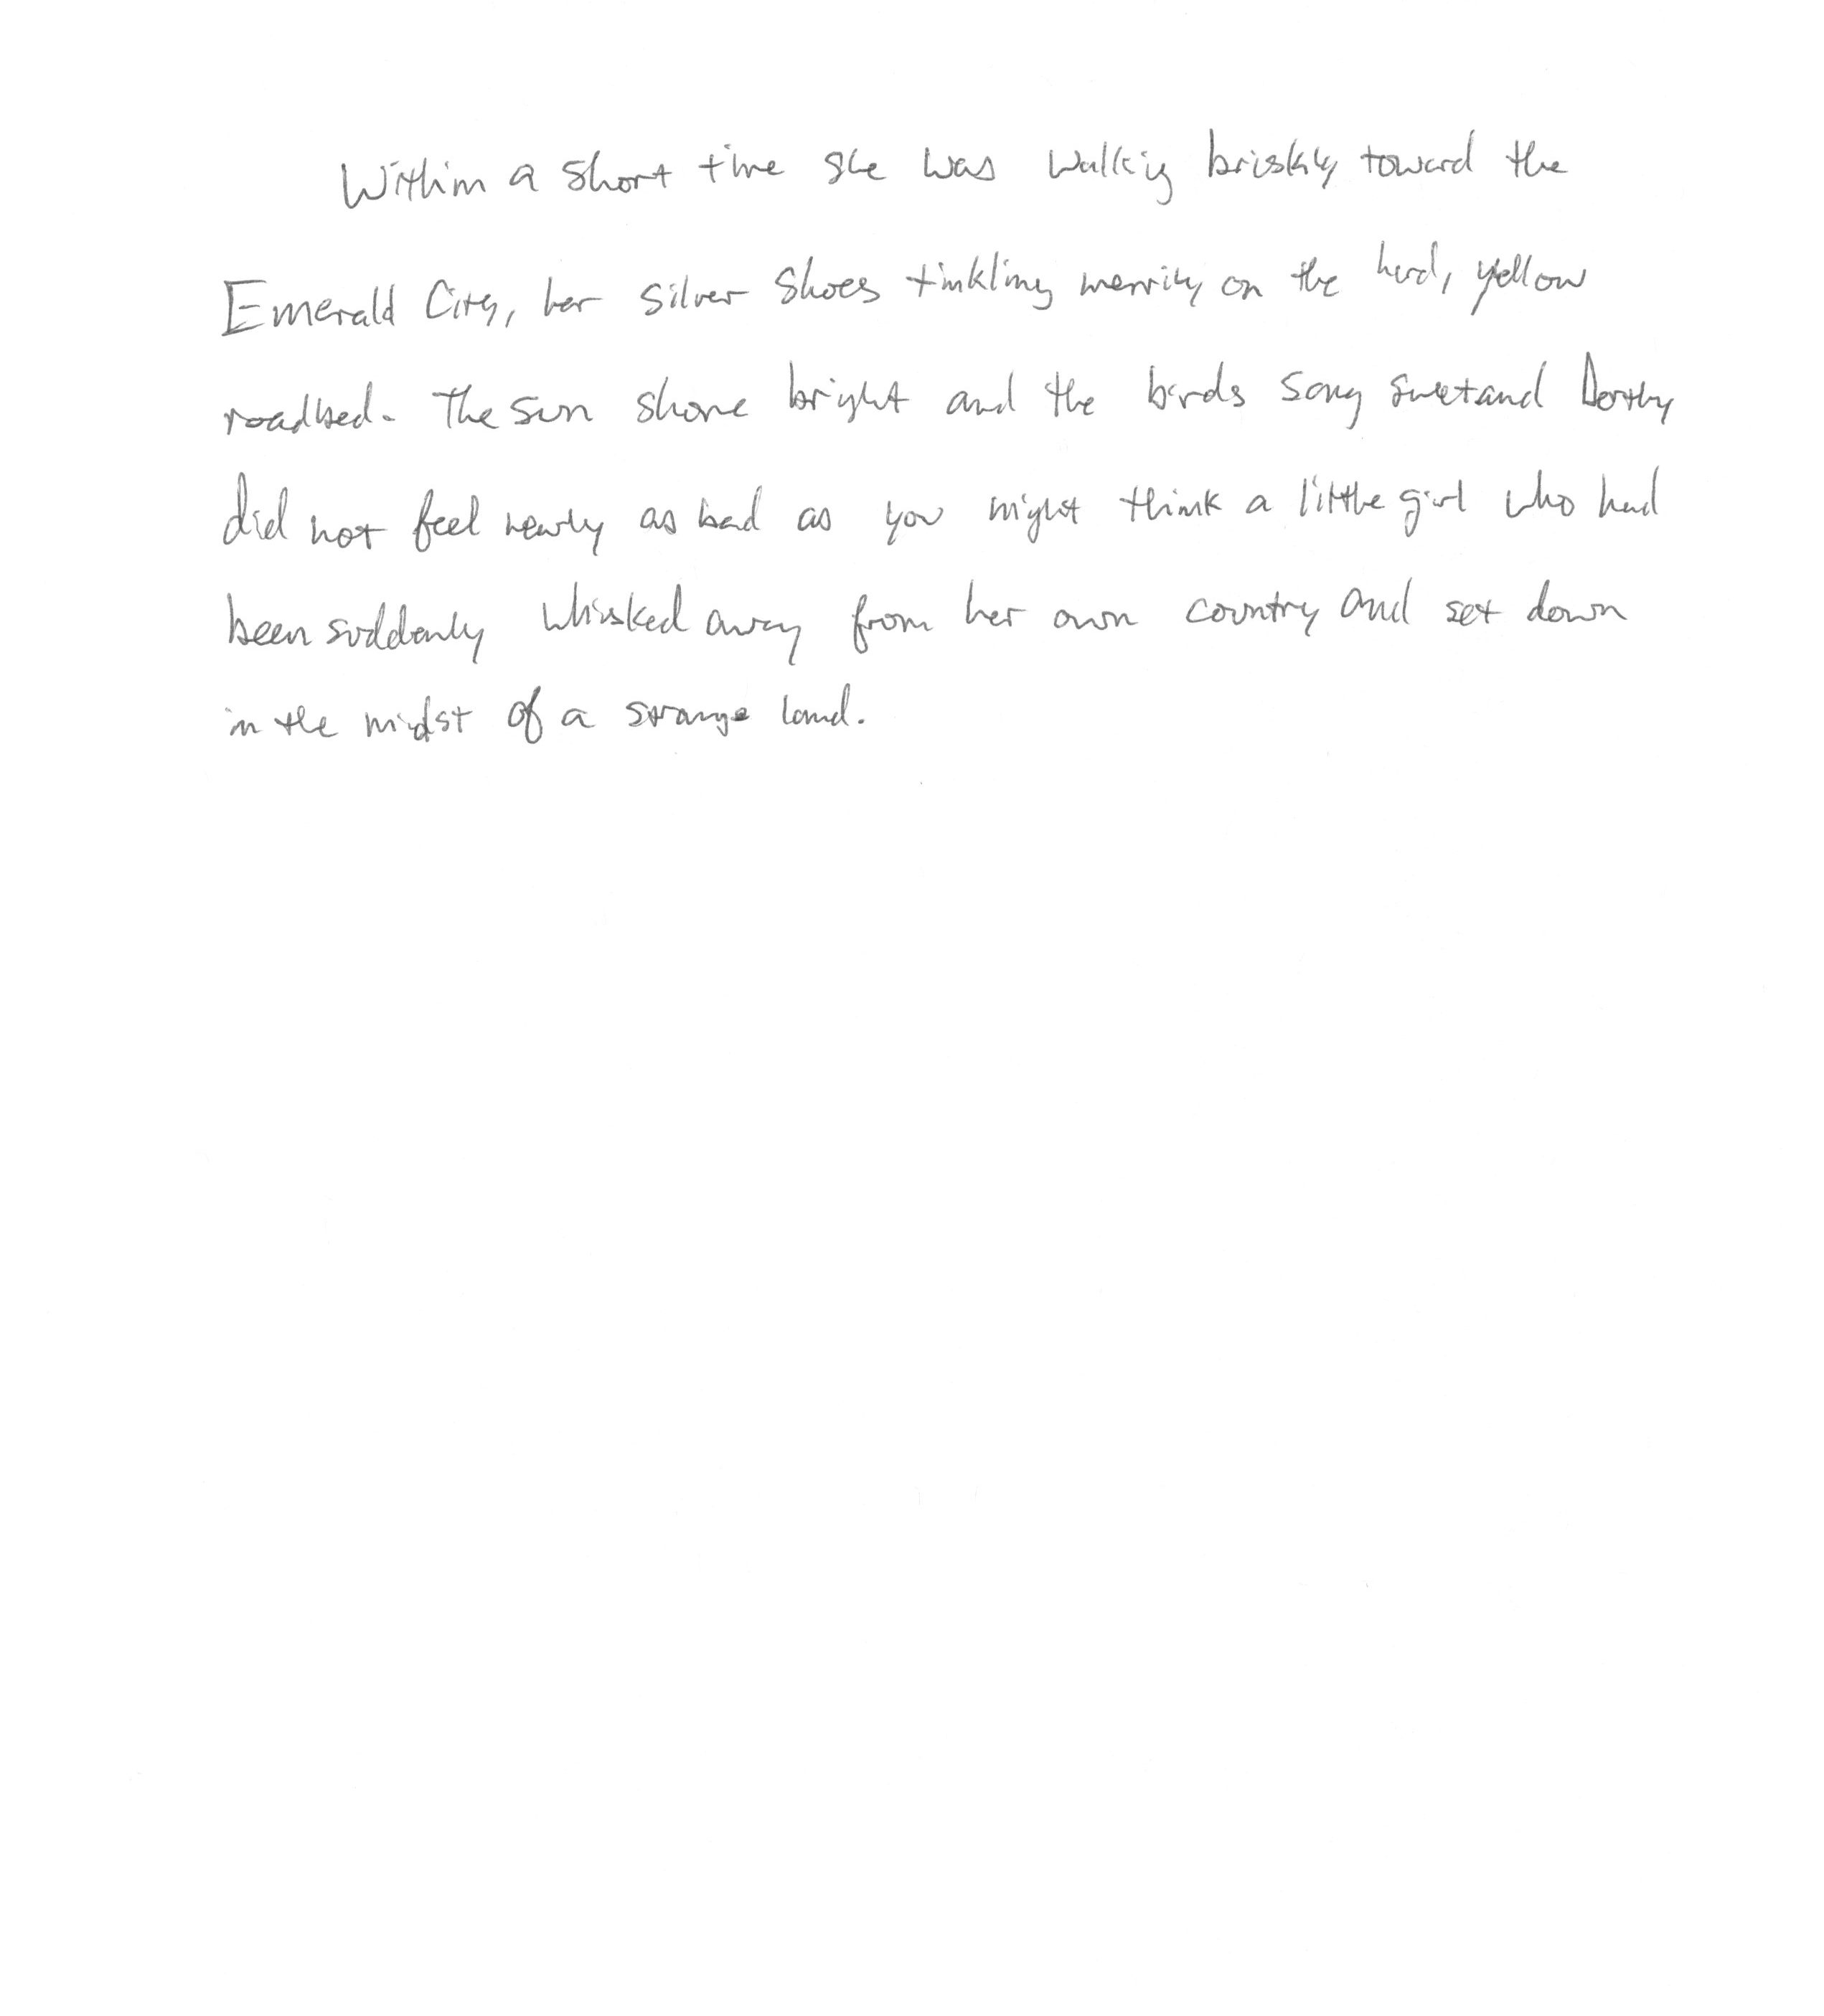 Within a short time she was walking briskly toward the
Emerald City, her silver shoes tinkling merrily on the hard, yellow
roadbed. The sun shone bright and the birds song sweet and Dorothy
did not feel nearly as bad as you might think a little girl who had
been suddenly whisked away from her own country and set down
in the midst of a strange land.